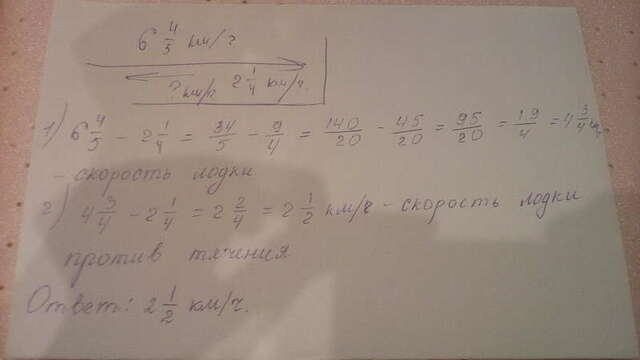 6 4/5 км/ч
? км/ч 2 1/4 км/ч.
1) 6 4/5 - 2 1/4 = 34/5 - 9/4 = 140/20 - 45/20 = 95/20 = 19/4 = 4 3/4
- скорость лодки
2) 4 3/4 - 2 1/4 = 2 2/4 = 2 1/2 км/ч - скорость лодки
против течения
Ответ: 2 1/2 км/ч.